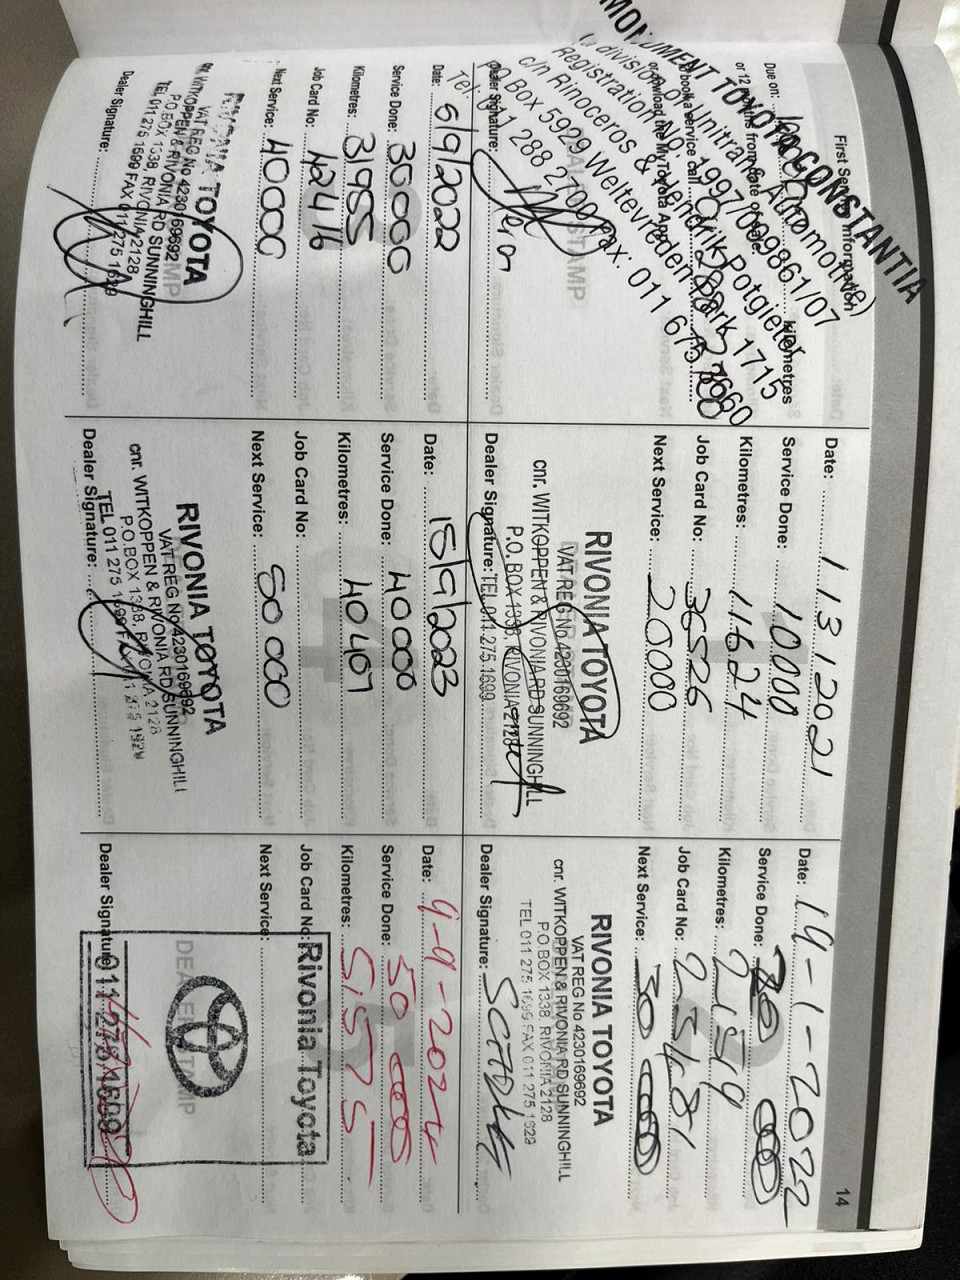 14
First Service Information
Due on:
kilometres
or 12 months from date of
To book a service call
or download the MyToyota App
Dealer Signature:
MONUMENT TOYOTA CONSTANTIA
(a division of Unitrans Automotive)
Registration No. 1997/009861/07
c/n Rinoceros & Hendrik Potgieter
PO Box 5929 Weltevredenpark 1715
Tel: 011 288 2700 Fax: 011 675 3660
Date: 1 13 1 2021
Service Done: 10000
Kilometres: 11624
Job Card No: 36526
Next Service: 20000
RIVONIA TOYOTA
VAT REG No 4230169692
cnr. WITKOPPEN & RIVONIA RD SUNNINGHILL
P.O. BOX 1338, RIVONIA 2128
Dealer Signature: TEL 011 275 1699
Date: 19-1-2022
Service Done:
Kilometres: 21519
Job Card No: 25481
Next Service: 30 000
RIVONIA TOYOTA
VAT REG No 4230169692
cnr. WITKOPPEN & RIVONIA RD SUNNINGHILL
P.O BOX 1338, RIVONIA 2128
TEL 011 275 1699 FAX 011 275 1629
Dealer Signature:
Date: 5/9/2022
Service Done: 30000
Kilometres: 31955
Job Card No: 42416
Next Service: 40000
RIVONIA TOYOTA
VAT REG No 4230169692
WITKOPPEN & RIVONIA RD SUNNINGHILL
P.O.BOX 1338, RIVONIA 2128,
TEL 011 275 1699 FAX 011 275 1629
Dealer Signature:
Date: 15/9/2023
Service Done: 40000
Kilometres: 40407
Job Card No:
Next Service: 50 000
RIVONIA TOYOTA
VAT REG No 4230169692
cnr. WITKOPPEN & RIVONIA RD SUNNINGHILL
P.O.BOX 1338, RIVONIA 2128
TEL 011 275 1699
Dealer Signature:
Date: 9-9-2024
Service Done: 50 000
Kilometres: 51575
Job Card No:
Next Service:
Rivonia Toyota
DEALER STAMP
Dealer Signature:
011 275 1699